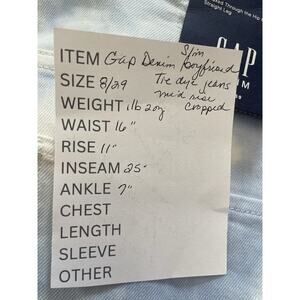 Relaxed Through the Hip
Straight Leg
GAP
Slim
ITEM Gap Denim boyfriend
SIZE 8/29 Tie dye jeans
mid rise
WEIGHT 1lb 2oz cropped
WAIST 16"
RISE 11"
INSEAM 25"
ANKLE 7"
CHEST
LENGTH
SLEEVE
OTHER